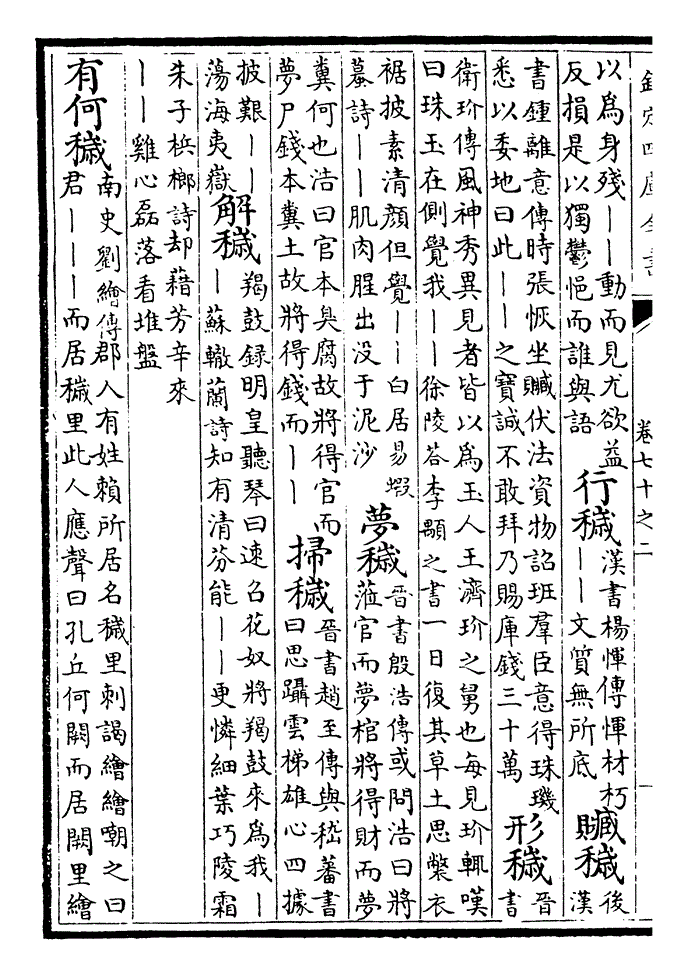 欽定四庫全書 卷七十之二
以爲身殘丨丨動而見尤欲益
反損是以獨鬱悒而誰與語
行穢
漢書楊惲傳惲材朽
丨丨文質無所底
贓穢
後
漢
書鍾離意傳時張恢坐贓伏法資物詔班羣臣意得珠璣
悉以委地曰此丨丨之寶誠不敢拜乃賜庫錢三十萬
形穢
晉
書
衛玠傳風神秀異見者皆以爲玉人王濟玠之舅也每見玠輒嘆
曰珠玉在側覺我丨丨徐陵荅李顒之書一日復其草土思獘衣
裾披素清顔但覺丨丨白居易蝦
蟇詩丨丨肌肉腥出没于泥沙
夢穢
晉書殷浩傳或問浩曰將
蒞官而夢棺將得財而夢
糞何也浩曰官本臭腐故將得官而
夢尸錢本糞土故將得錢而丨丨
掃穢
晉書趙至傳與嵇蕃書
曰思躡雲梯雄心四據
披艱丨丨
蕩海夷嶽
解穢
羯鼓録明皇聽琴曰速召花奴將羯鼓來爲我丨
丨蘇轍蘭詩知有清芬能丨丨更憐細葉巧陵霜
朱子梹榔詩却藉芳辛來
丨丨雞心磊落看堆盤
有何穢
南史劉繪傳郡人有姓賴所居名穢里刺謁繪繪嘲之曰
君丨丨丨而居穢里此人應聲曰孔丘何闕而居闕里繪